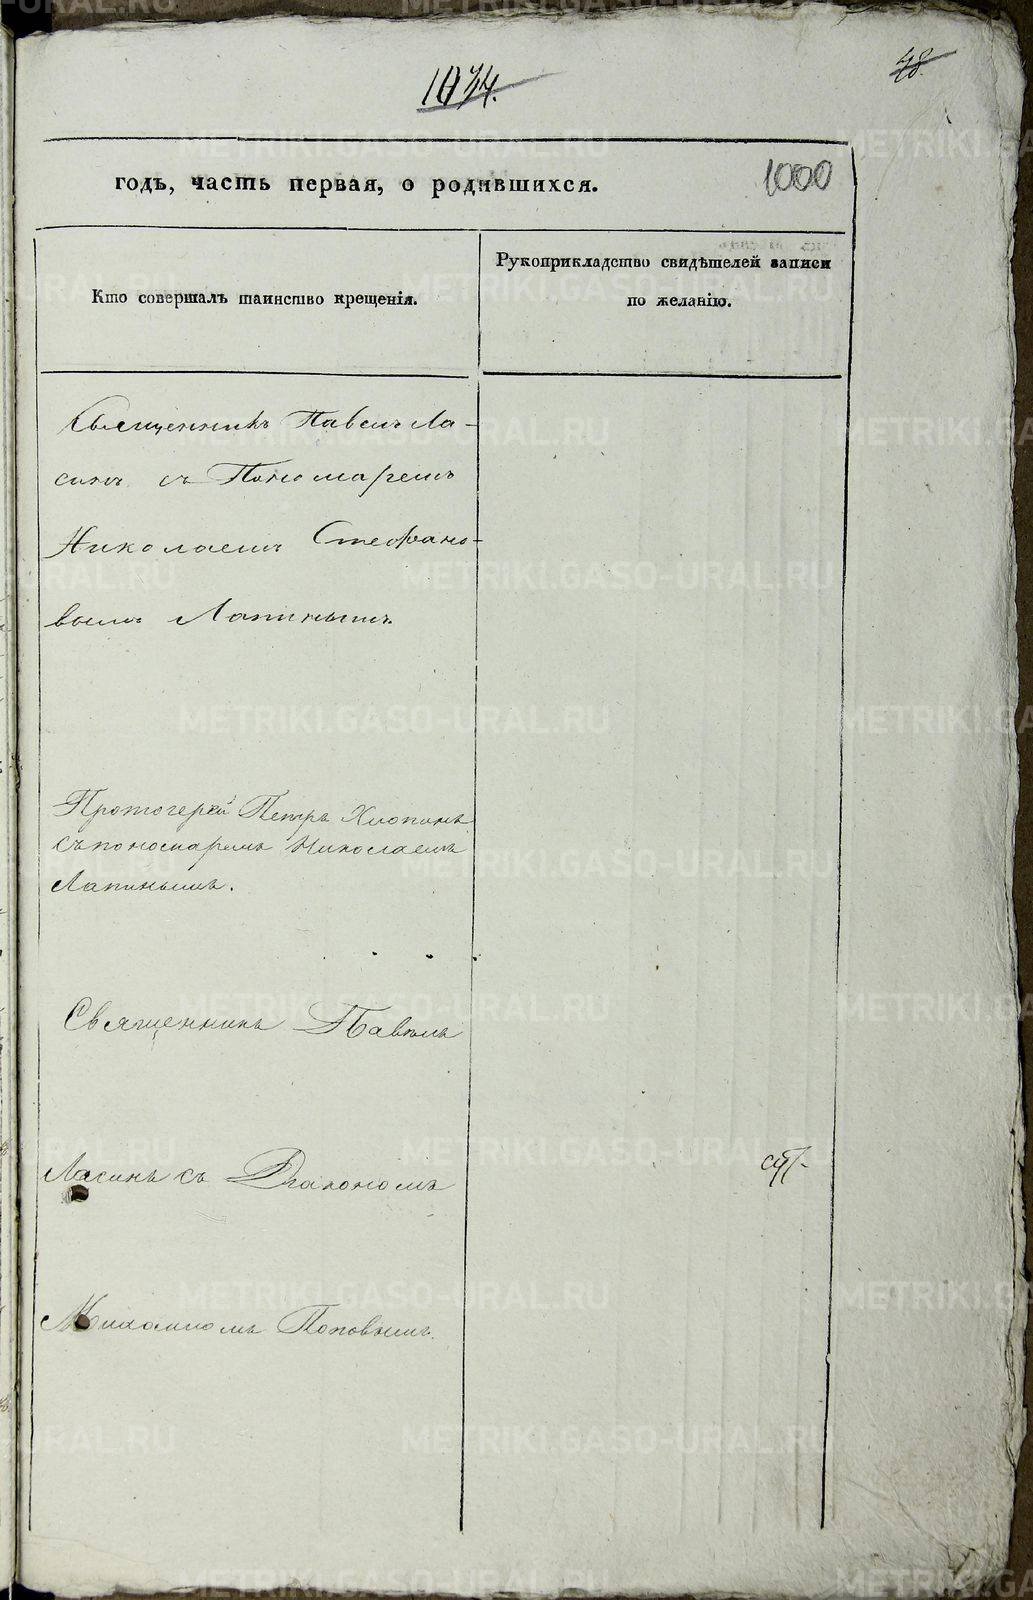 48.
1034.
годъ, часть первая, о родившихся.
1000
Кто совершалъ таинство крещенія.
Рукоприкладство свидѣтелей записи
по желанію.
Священникъ Павелъ Ла-
синъ съ Пономаремъ
Николаемъ Стефано-
вымъ Лапинымъ.
Протоіерей Петръ Хлопинъ
съ пономаремъ Николаемъ
Лапинымъ.
Священникъ Павелъ
Ласинъ съ Діакономъ
Михаиломъ Поповымъ.
METRIKI.GASO-URAL.RU